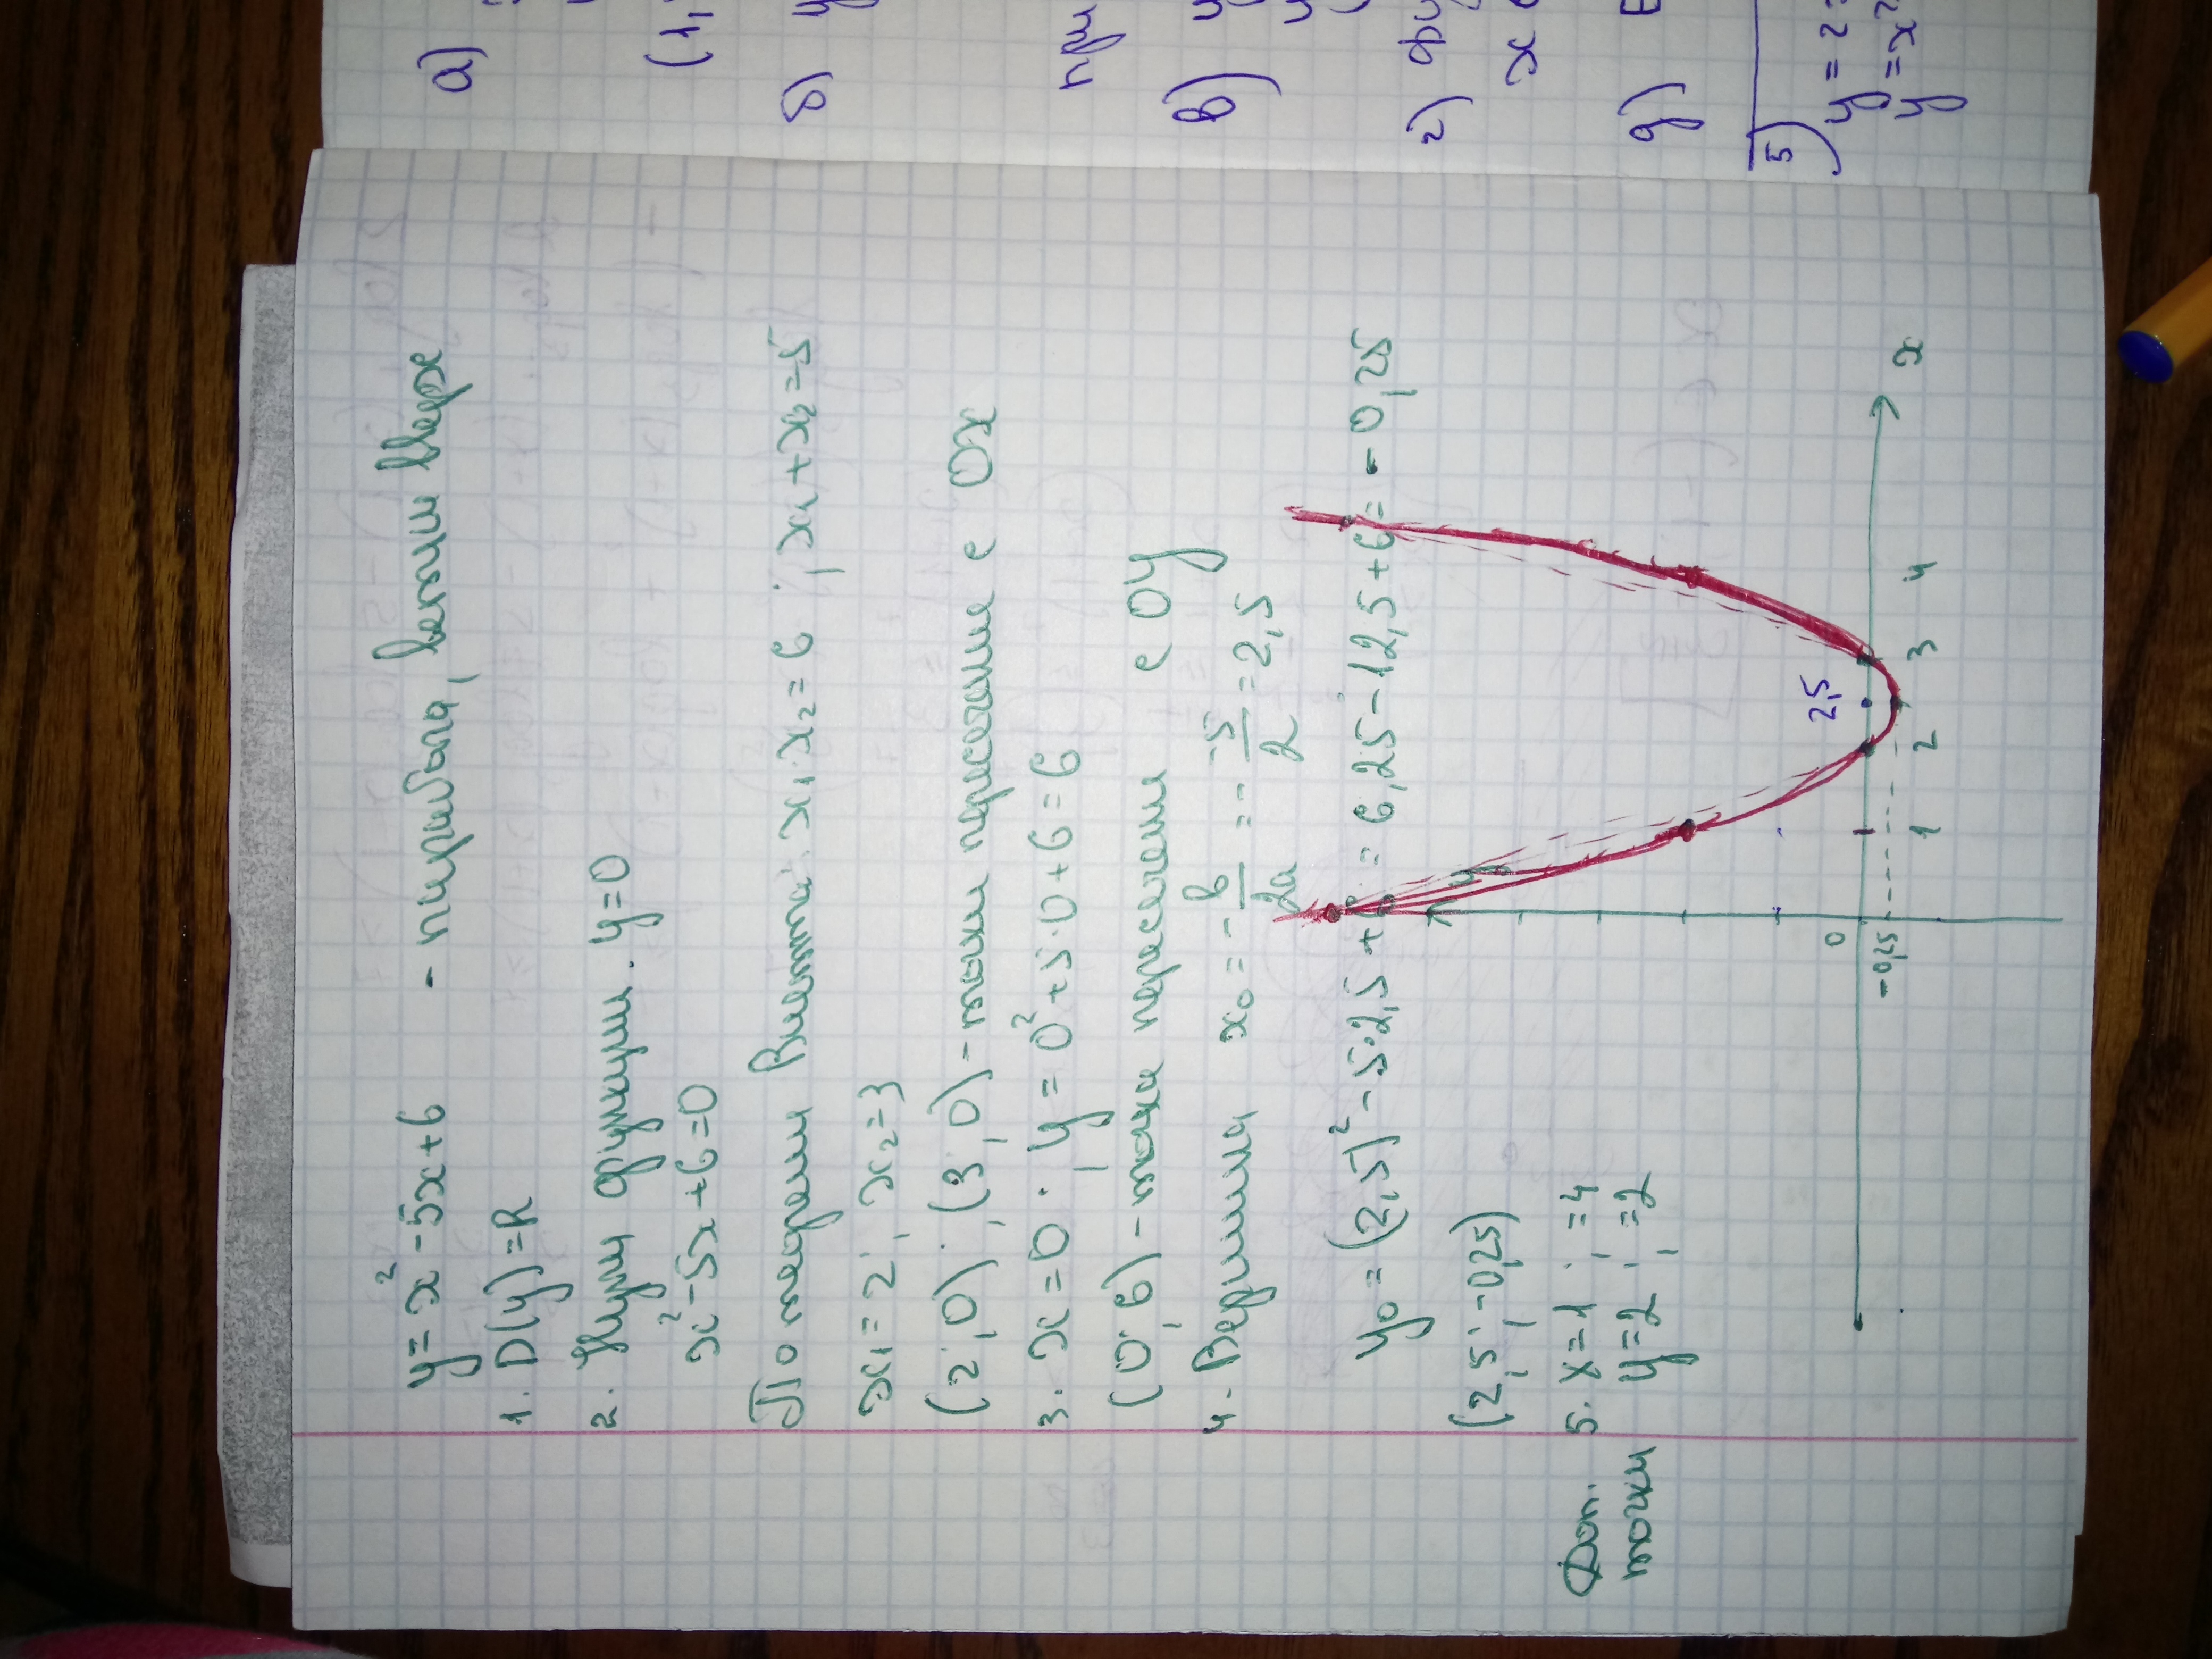 y = x² - 5x + 6 - парабола, ветки вверх
1. D(y) = R
2. Нули функции. y = 0
x² - 5x + 6 = 0
По теореме Виетта: x₁ · x₂ = 6 ; x₁ + x₂ = 5
x₁ = 2 ; x₂ = 3
(2 ; 0) ; (3 ; 0) - точки пересечение с Ox
3. x = 0 ; y = 0² + 5 · 0 + 6 = 6
(0 ; 6) - точка пересечения с Oy
4. Вершина x₀ = - b/2a = - -5/2 = 2,5
y₀ = (2,5)² - 5 · 2,5 + 6 = 6,25 - 12,5 + 6 = - 0,25
(2,5 ; -0,25)
Доп. 5. x = 1 ; = 4
точки y = 2 ; = 2
y
2,5
0
-0,25
1 2 3 4 x
а)
(1,
б) y
при
в) y
г) фу
x
д) E
5) y = 2
y = x²